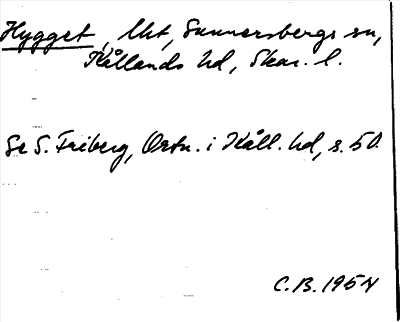 Hygget, lht, Sunnersbergs sn,
Kållands hd, Skar. l.
Se S. Friberg, Ortn. i Kåll. hd, s. 50.
C.B. 1954